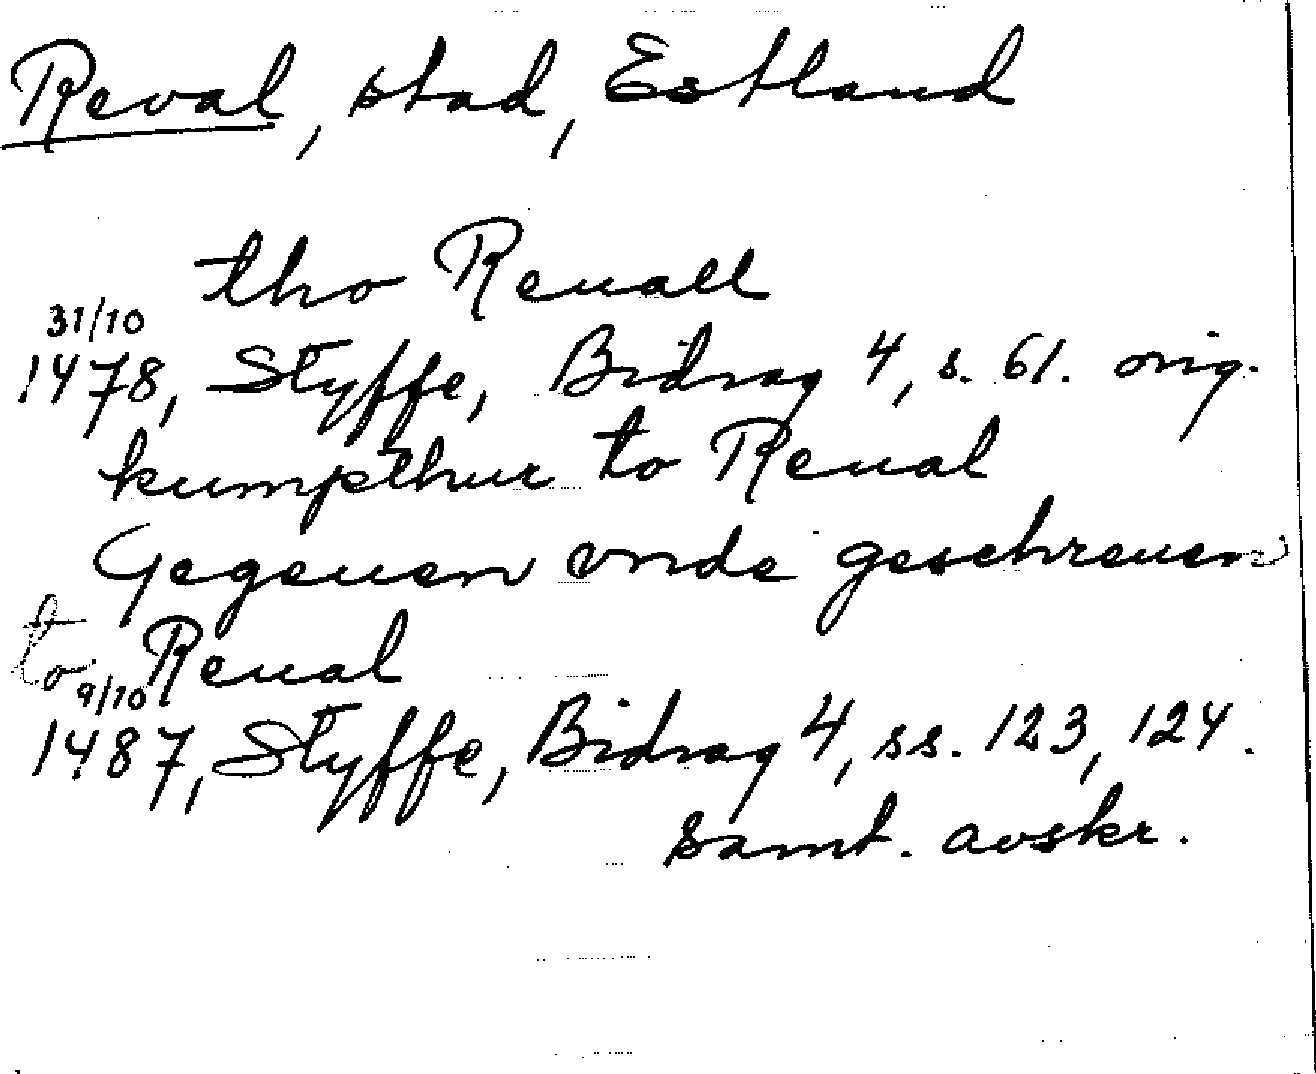 Reval, stad, Estland
tho Reuall
31/10
1478, Styffe, Bidrag 4, s. 61. orig.
kumpthur to Reual
Gegeuen vnde geschreuen
to Reual
9/10
1487, Styffe, Bidrag 4, ss. 123, 124.
samt. avskr.